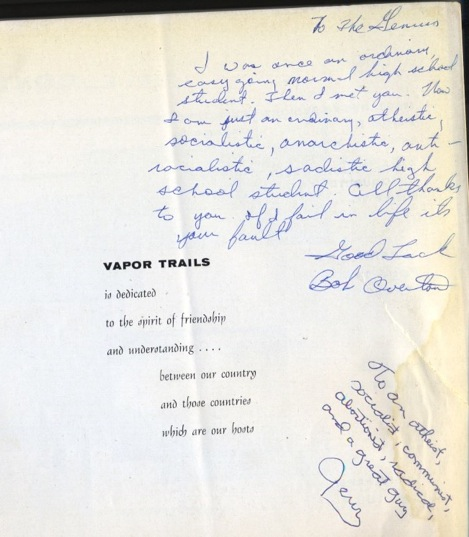 To The Genius
I was once an ordinary,
easy going normal high school
student. Then I met you. Now
I am just an ordinary, atheistic,
socialistic, anarchistic, anti-
racialistic, sadistic high
school student. All thanks
to you. If I fail in life its
your fault
Good Luck
Bob Overton
VAPOR TRAILS
is dedicated
to the spirit of friendship
and understanding . . . .
between our country
and those countries
which are our hosts
To an atheist,
socialist, communist,
abortionist, radical,
and a great guy
Jerry